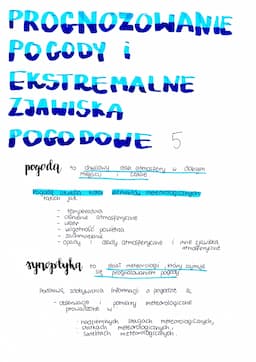 PROGNOZOWANIE
POGODY i
EKSTREMALNE
ZJAWISKA
POGODOWE 5
pogoda to chwilowy stan atmosfery w danym
miejscu i czasie
Pogodę określa kilka elementów meteorologicznych
takich jak
- temperatura
- ciśnienie atmosferyczne
- wiatr
- wilgotność powietrza
- zachmurzenie
- opady i osady atmosferyczne i inne zjawiska
atmosferyczne
synoptyka to dział meteorologii, który zajmuje
się prognozowaniem pogody
Podstawą zdobywania informacji o pogodzie są
- obserwacje i pomiary meteorologiczne
prowadzone w
meteorologicznych,
statkach meteorologicznych,
satelitach meteorologicznych